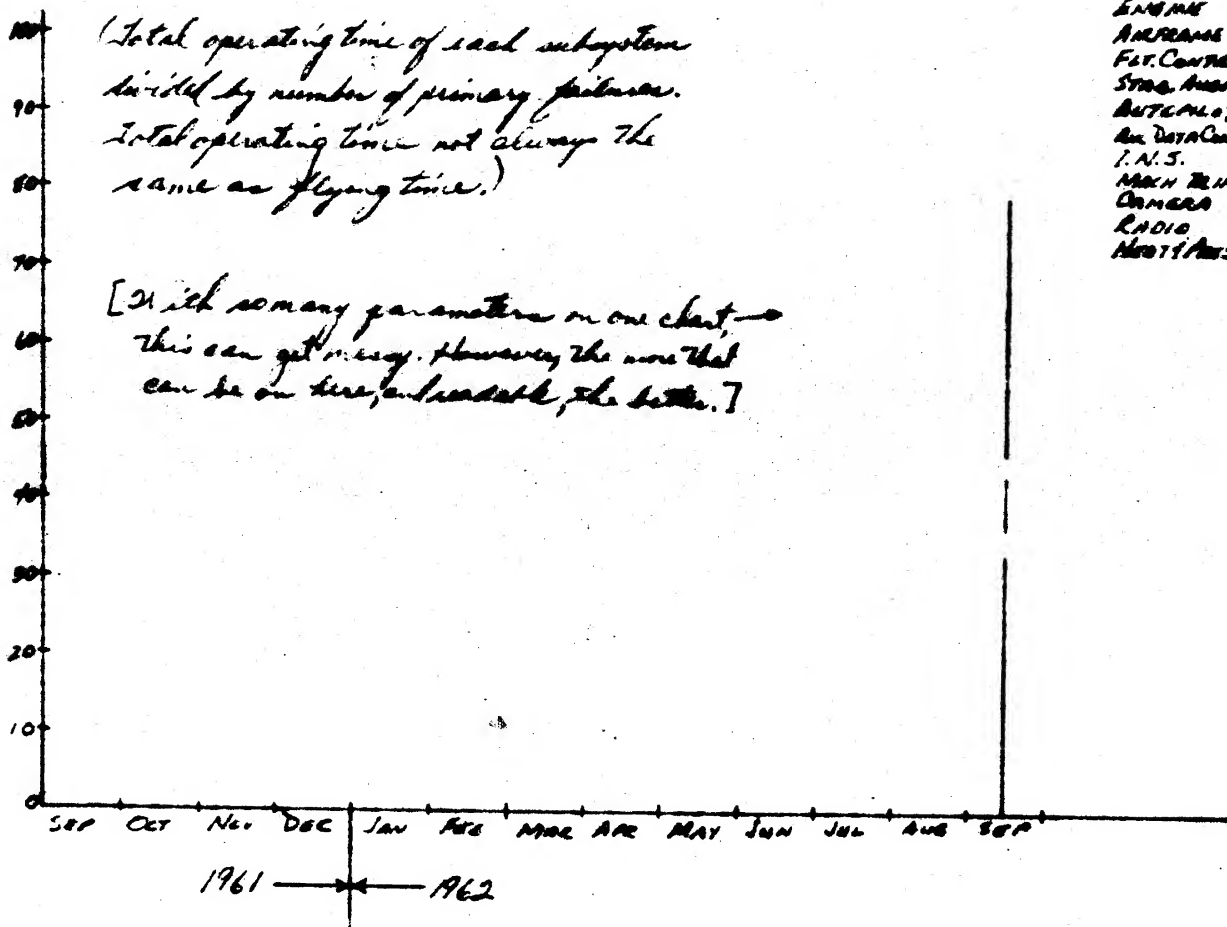 100
90
80
70
60
50
40
30
20
10
0
(Total operating time of each subsystem
divided by number of primary failures.
Total operating time not always the
same as flying time.)
[With so many parameters on one chart,
this can get messy. However, the more that
can be on here, and readable, the better.]
ENGINE
AIRFRAME
FLT. CONTR
STAB. AUG
AUTOPILOT
AIR DATA COM
I.N.S.
MACH TRIM
CAMERA
RADIO
SEP OCT NOV DEC JAN FEB MAR APR MAY JUN JUL AUG SEP
1961 1962